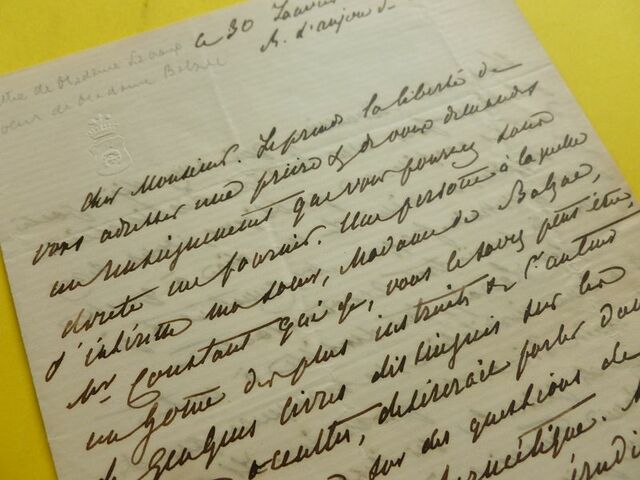 ce 30 Janvier
R. d'anjou
de Madame
soeur de Madame Balzac
Cher Monsieur. Je prends la liberté de
vous adresser une prière & de vous demander
un renseignement que vous pourrez sans
doute me fournir. Une personne à laquelle
s'intéresse ma soeur, Madame de Balzac,
Mr Constant qui est, vous le savez peut être,
un homme des plus instruits & l'auteur
de quelques livres distingués sur les
occultes, désirerait parler dans
sur des questions de